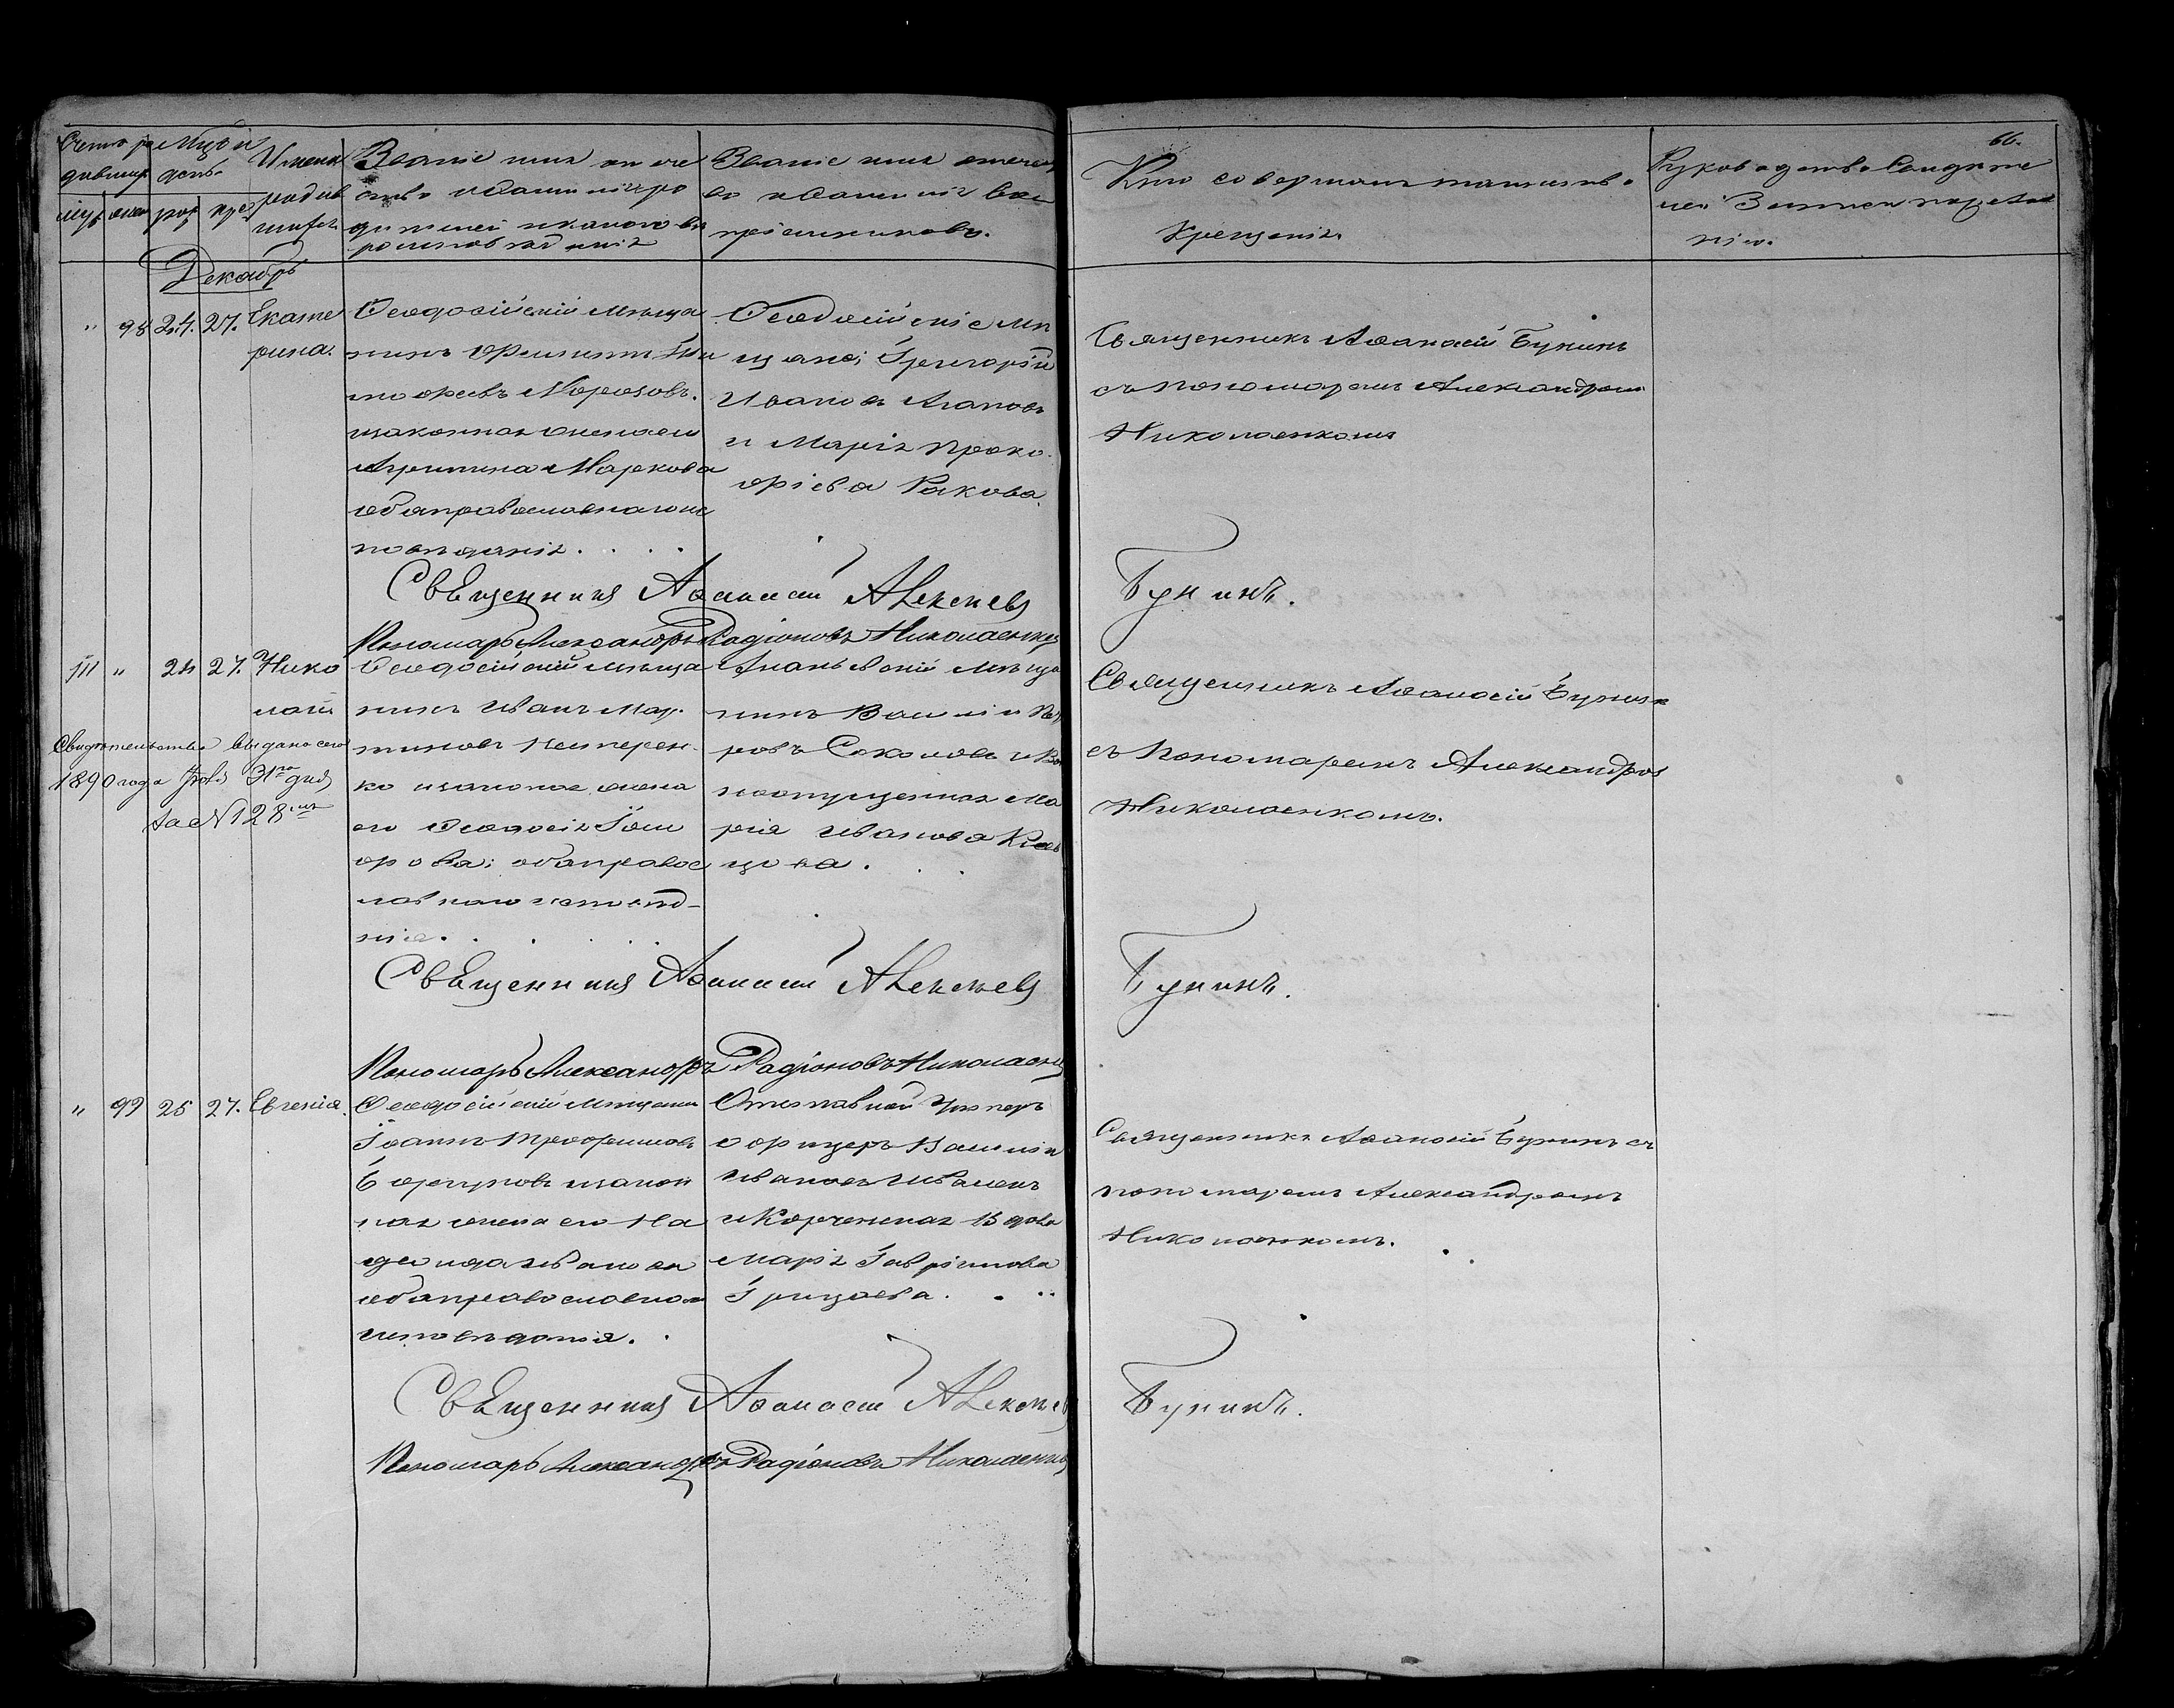 66.
Счетъ ро Мцъ и
дившир день.
Имена
родив
шихся
муж жен рож крес
Званіе имя отече
ство и фамилія ро
дителей и какого вѣ
роисповѣданія
Званіе имя отечест
во и фамилія вос
пріемниковъ.
Кто совершалъ таинство
Крещенія
Рукоприкладство Свидѣте
лей Записи по желанію
Декабрь
" 98 24. 27. Екате
рина.
Ѳеодосійскій мѣща
нинъ Филиппъ Ти
моѳеевъ Морозовъ.
и законная жена его
Агрипина Маркова
оба православнаго ис
повѣданія.
Ѳеодосійскіе мѣ
щане: Григорій
Ивановъ Агаповъ
и Марія Проко
фіева Ракова.
Священникъ Аѳанасій Бунинъ
съ пономаремъ Александромъ
Николаенкомъ
Священникъ Аѳанасій Алексѣевъ Бунинъ.
Пономарь Александръ Радіоновъ Николаенко
111 " 24 27. Нико
лай
Ѳеодосійскій мѣща
нинъ Иванъ Мар
тиновъ Нестерен
ко и законная жена
его Ѳеодосія
орова; оба правос
лавнаго исповѣд-
нія.
Ананьевскій мѣща
нинъ Василій Пет
ровъ Соколовъ и
Ма
рія Иванова
цова.
Свидѣтельство выдано сего
1890 года Іюля 31го дня
за № 128мъ
Священникъ Аѳанасій Бунинъ
съ Пономаремъ Александром
Николаенкомъ.
Священникъ Аѳанасій Алексѣевъ Бунинъ.
Пономарь Александръ Радіоновъ Николаенко
" 99 25 27. Евгенія.
Ѳеодосійскій мѣщанин
Іоаннъ Трофимовъ
и закон
ная жена его На
дежда Иванова
оба православнаго
исповѣданія.
Отставной Унтеръ
офицеръ Василій
Ивановъ Ивановъ
и Керченская вдова
Марія Гаврилова
Грицаева.
Священникъ Аѳанасій Бунинъ съ
пономаремъ Александромъ
Николаенкомъ.
Священникъ Аѳанасій Алексѣев Бунинъ.
Пономарь Александръ Радіоновъ Николаенко